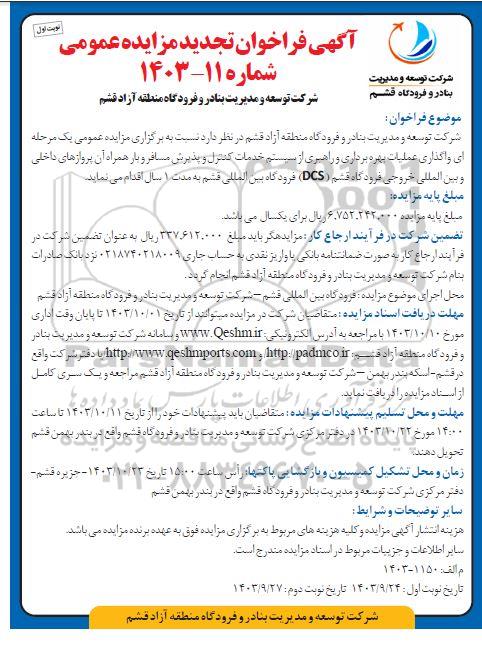 نوبت اول
شرکت توسعه و مدیریت
بنادر و فرودگاه قشم
آگهی فراخوان تجدید مزایده عمومی
شماره ۱۱-۱۴۰۳
شرکت توسعه و مدیریت بنادر و فرودگاه منطقه آزاد قشم
موضوع فراخوان :
شرکت توسعه و مدیریت بنادر و فرودگاه منطقه آزاد قشم در نظر دارد نسبت به برگزاری مزایده عمومی یک مرحله
ای واگذاری عملیات بهره برداری و راهبری از سیستم خدمات کنترل و پذیرش مسافر و بار همراه آن پروازهای داخلی
و بین المللی خروجی فرودگاه قشم (DCS) فرودگاه بین المللی قشم به مدت ۱ سال اقدام می نماید.
مبلغ پایه مزایده:
مبلغ پایه مزایده ۶.۷۵۲.۲۴۲.۰۰۰ ریال برای یکسال می باشد.
تضمین شرکت در فرآیند ارجاع کار : مزایده‌گر باید مبلغ ۳۳۷.۶۱۲.۰۰۰ ریال به عنوان تضمین شرکت در
فرآیند ارجاع کار به صورت ضمانتنامه بانکی یا واریز نقدی به حساب جاری ۰۲۱۸۷۴۰۲۱۸۰۰۹ نزد بانک صادرات
بنام شرکت توسعه و مدیریت بنادر و فرودگاه منطقه آزاد قشم انجام گردد.
محل اجرای موضوع مزایده : فرودگاه بین المللی قشم – شرکت توسعه و مدیریت بنادر و فرودگاه منطقه آزاد قشم
مهلت دریافت اسناد مزایده : متقاضیان شرکت در مزایده میتوانند از تاریخ ۱۴۰۳/۱۰/۰۱ تا پایان وقت اداری
مورخ ۱۴۰۳/۱۰/۱۰ با مراجعه به آدرس الکترونیکی: www.Qeshm.ir و سامانه شرکت توسعه و مدیریت بنادر
و فرودگاه منطقه آزاد قشم: http://padmco.ir و http://www.qeshmports.com یا دفتر شرکت واقع
در قشم-اسکله بندر بهمن – شرکت توسعه و مدیریت بنادر و فرودگاه منطقه آزاد قشم مراجعه و یک سری کامل
از اسناد مزایده را دریافت نماید.
مهلت و محل تسلیم پیشنهادات مزایده : متقاضیان باید پیشنهادات خود را از تاریخ ۱۴۰۳/۱۰/۱۱ تا ساعت
۱۴:۰۰ مورخ ۱۴۰۳/۱۰/۲۲ در دفتر مرکزی شرکت توسعه و مدیریت بنادر و فرودگاه قشم واقع در بندر بهمن قشم
تحویل دهند.
زمان و محل تشکیل کمیسیون و بازگشایی پاکتها: رأس ساعت ۱۵:۰۰ تاریخ ۱۴۰۳/۱۰/۲۳ - جزیره قشم-
دفتر مرکزی شرکت توسعه و مدیریت بنادر و فرودگاه قشم واقع در بندر بهمن قشم
سایر توضیحات و شرایط :
هزینه انتشار آگهی مزایده و کلیه هزینه های مربوط به برگزاری مزایده فوق به عهده برنده مزایده می باشد.
سایر اطلاعات و جزییات مربوط در اسناد مزایده مندرج است.
م الف: ۱۱۵۰-۱۴۰۳
تاریخ نوبت اول : ۱۴۰۳/۹/۲۴ تاریخ نوبت دوم : ۱۴۰۳/۹/۲۷
شرکت توسعه و مدیریت بنادر و فرودگاه منطقه آزاد قشم